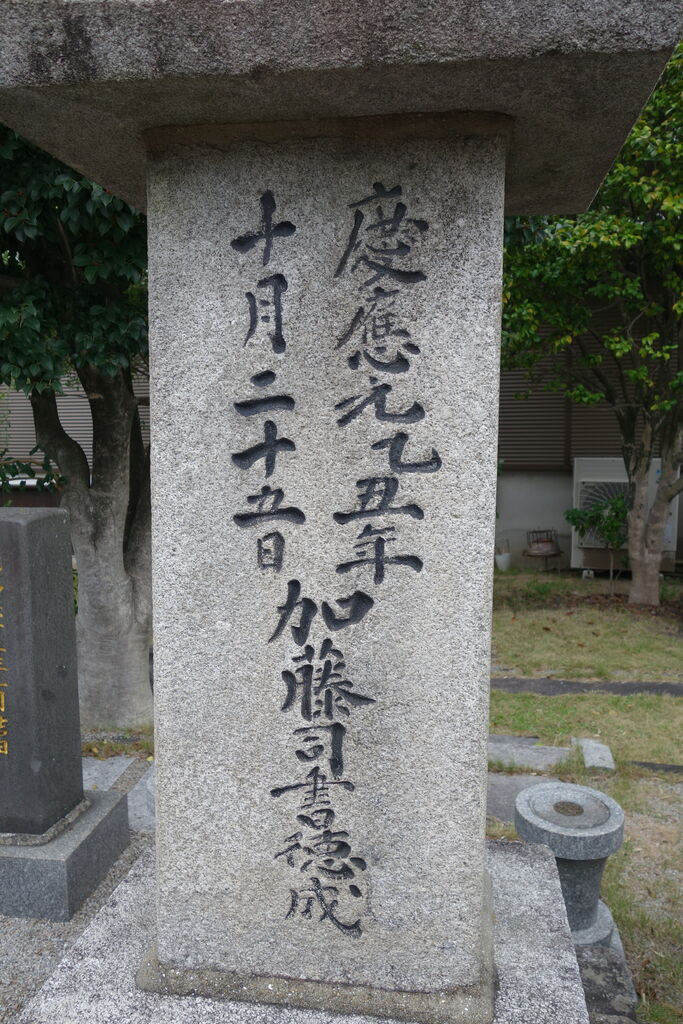 慶應元乙丑年
十月二十五日
加藤司書徳成